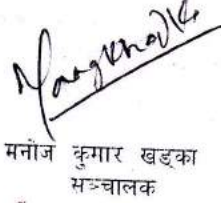 मनोज कुमार खड्का
सञ्चालक